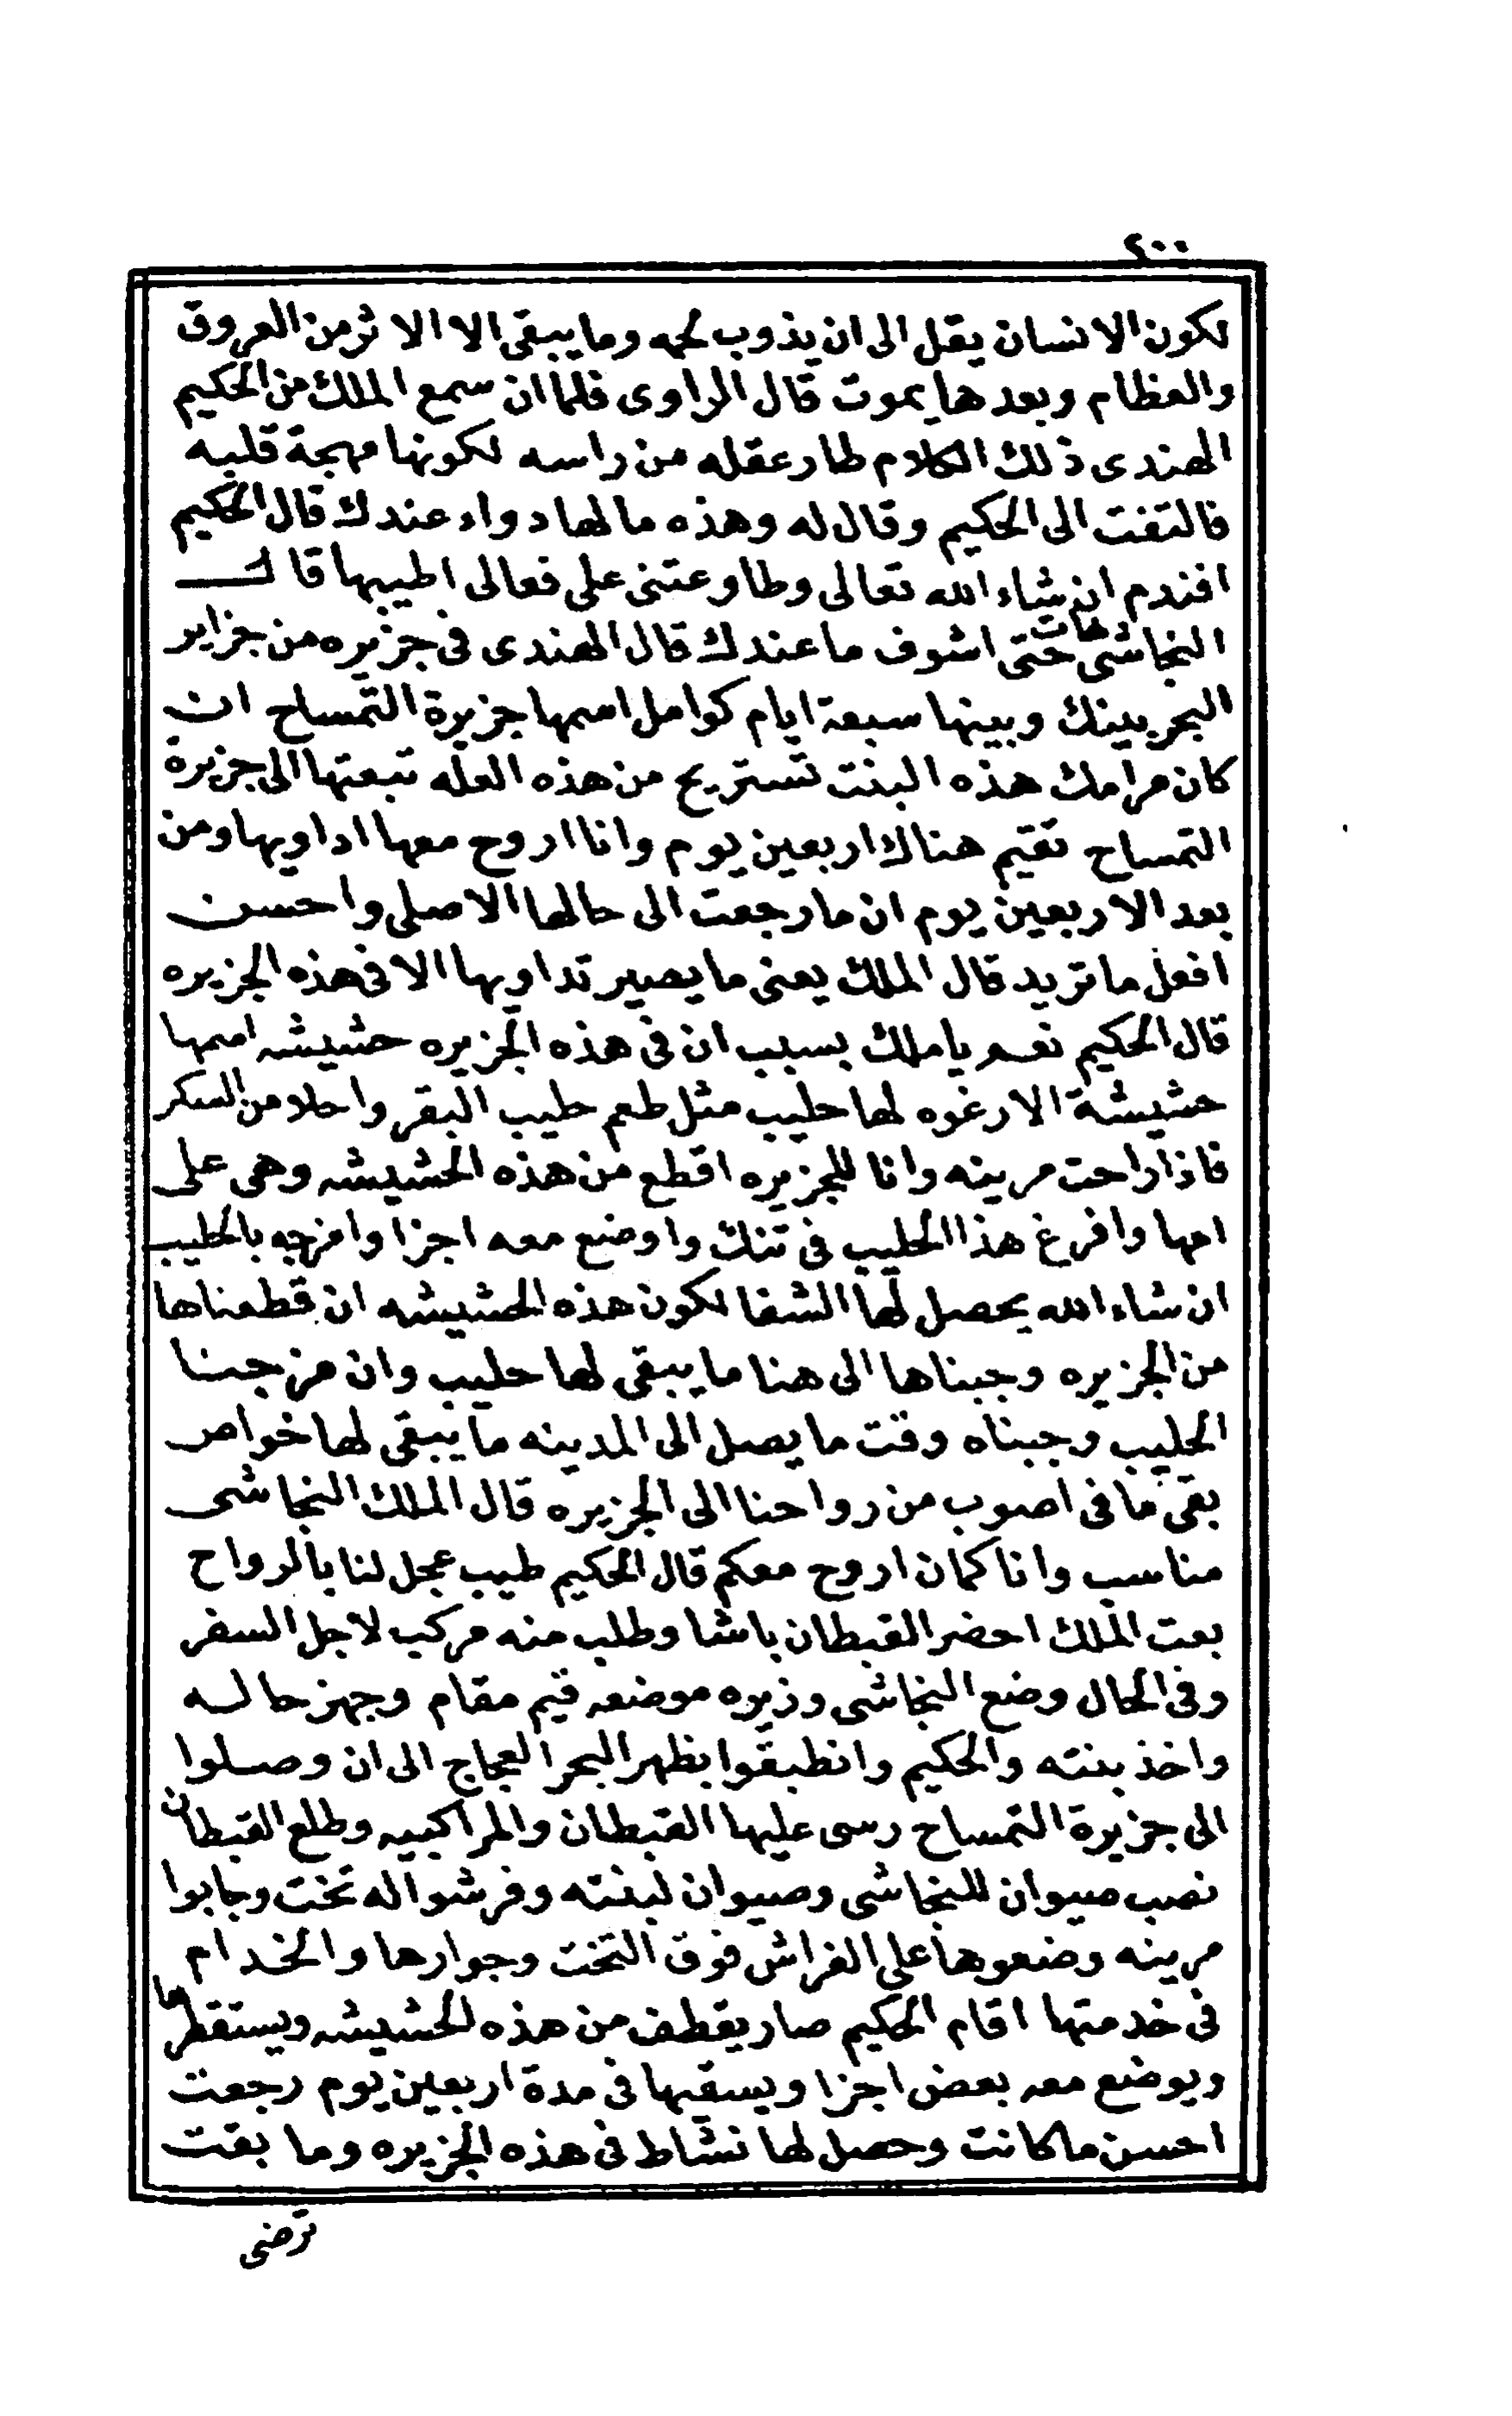 ٤٠٠
لكون الانسان يقل الى ان يذوب لحمه وما يبقى الا الاثر من العروق
والعظام وبعدها يموت قال الراوى فلما ان سمع الملك من الحكيم
الهندى ذلك الكلام طار عقله من راسه لكونها مهجة قلبه
فالتفت الى الحكيم وقال له وهذه ما لها دواء عندك قال الحكيم
افندم ان شاء الله تعالى وطاوعتنى على فعالى اطيبها قال
النجاشى هات حتى اشوف ما عندك قال الهندى فى جزيره من جزاير
البحر بينك وبينها سبعة ايام كوامل اسمها جزيرة التمساح ان
كان مرامك هذه البنت تستريح من هذه العله تبعتها الى جزيرة
التمساح تقيم هناك اربعين يوم وانا اروح معها اداويها ومن
بعد الاربعين يوم ان ما رجعت الى حالها الاصلى واحسن
افعل ما تريد قال الملك يعنى ما يصير تداويها الا فى هذه الجزيره
قال الحكيم نعم يا ملك بسبب ان فى هذه الجزيره حشيشه اسمها
حشيشة الارغوه لها حليب مثل طعم حليب البقر واحلا من السكر
فاذا راحت مرينه وانا للجزيره اقطع من هذه الحشيشه وهى على
امها وافرغ هذا الحليب فى تنك واوضع معه اجزا وامزجه بالحليب
ان شاء الله يحصل لها الشفا لكون هذه الحشيشه ان قطعناها
من الجزيره وجبناها الى هنا ما يبقى لها حليب وان مزجنا
الحليب وجبناه وقت ما يصل الى المدينه ما يبقى لها خوامر
بقى ما فى اصوب من رواحنا الى الجزيره قال الملك النجاشى
مناسب وانا كمان اروح معكم قال الحكيم طيب عجل لنا بالرواح
بعت الملك احضر القبطان باشا وطلب منه مركب لاجل السفر
وفى الحال وضع النجاشى وزيره موضعه قيم مقام وجهز حاله
واخذ بنته والحكيم وانطبقوا بظهر البحر العجاج الى ان وصلوا
الى جزيرة التمساح رسى عليها القبطان والمراكبيه وطلع القبطان
نصب صيوان للنجاشى وصيوان لبنته وفرشوا له تخت وجابوا
مرينه وضعوها على الفراش فوق التخت وجوارها والخدام
فى خدمتها اقام الحكيم صار يقطف من هذه الحشيشه ويستقطرها
ويوضع معه بعض اجزا ويسقيها فى مدة اربعين يوم رجعت
احسن ما كانت وحصل لها نشاط فى هذه الجزيره وما بقت
ترضى